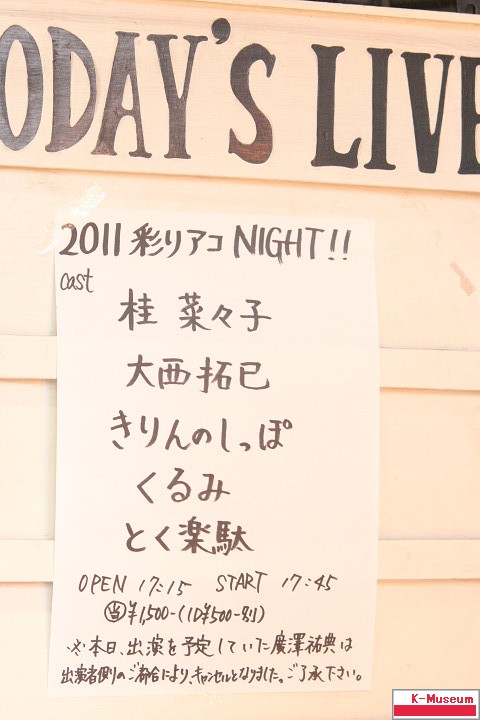 ODAY'S LIVE
2011 彩りアコ NIGHT!!
cast
桂 菜々子
大西拓巳
きりんのしっぽ
くるみ
とく楽駄
OPEN 17:15 START 17:45
㊜¥1,500-(1D¥500-別)
※本日、出演を予定していた廣澤祐典は
出演者側のご都合により、キャンセルとなりました。ご了承下さい。
K-Museum